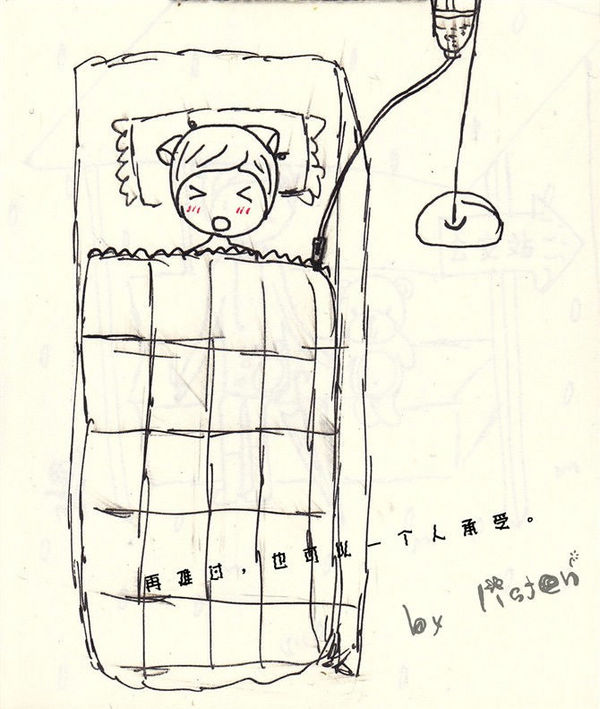 再难过，也可以一个人承受。
by listen